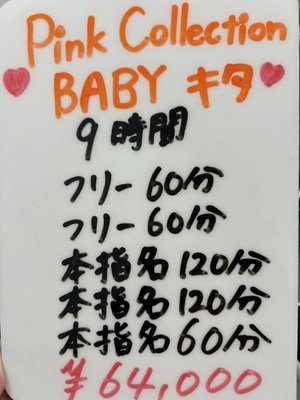 Pink Collection
BABY キタ
9時間
フリー60分
フリー60分
本指名120分
本指名120分
本指名60分
¥64,000